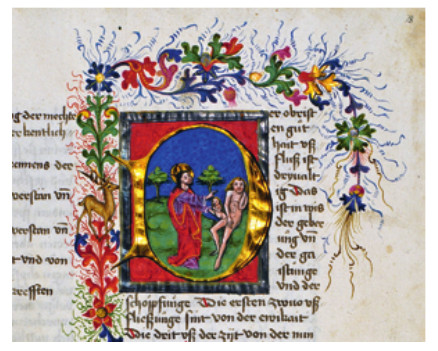 ng der mechte
er kentlich
emens der
verstan vn̄
verstan vn̄
t vnd von
refften
D
er obrist
en gut
hait vß
fluß ist
dryualt
ig Das
ist in wis
der geber
ung vn̄
der ga
istunge
vnd der
schöpfunge Die ersten zwuo vß
fließunge sint von der ewikait
Die drit vß der zijt von der nun